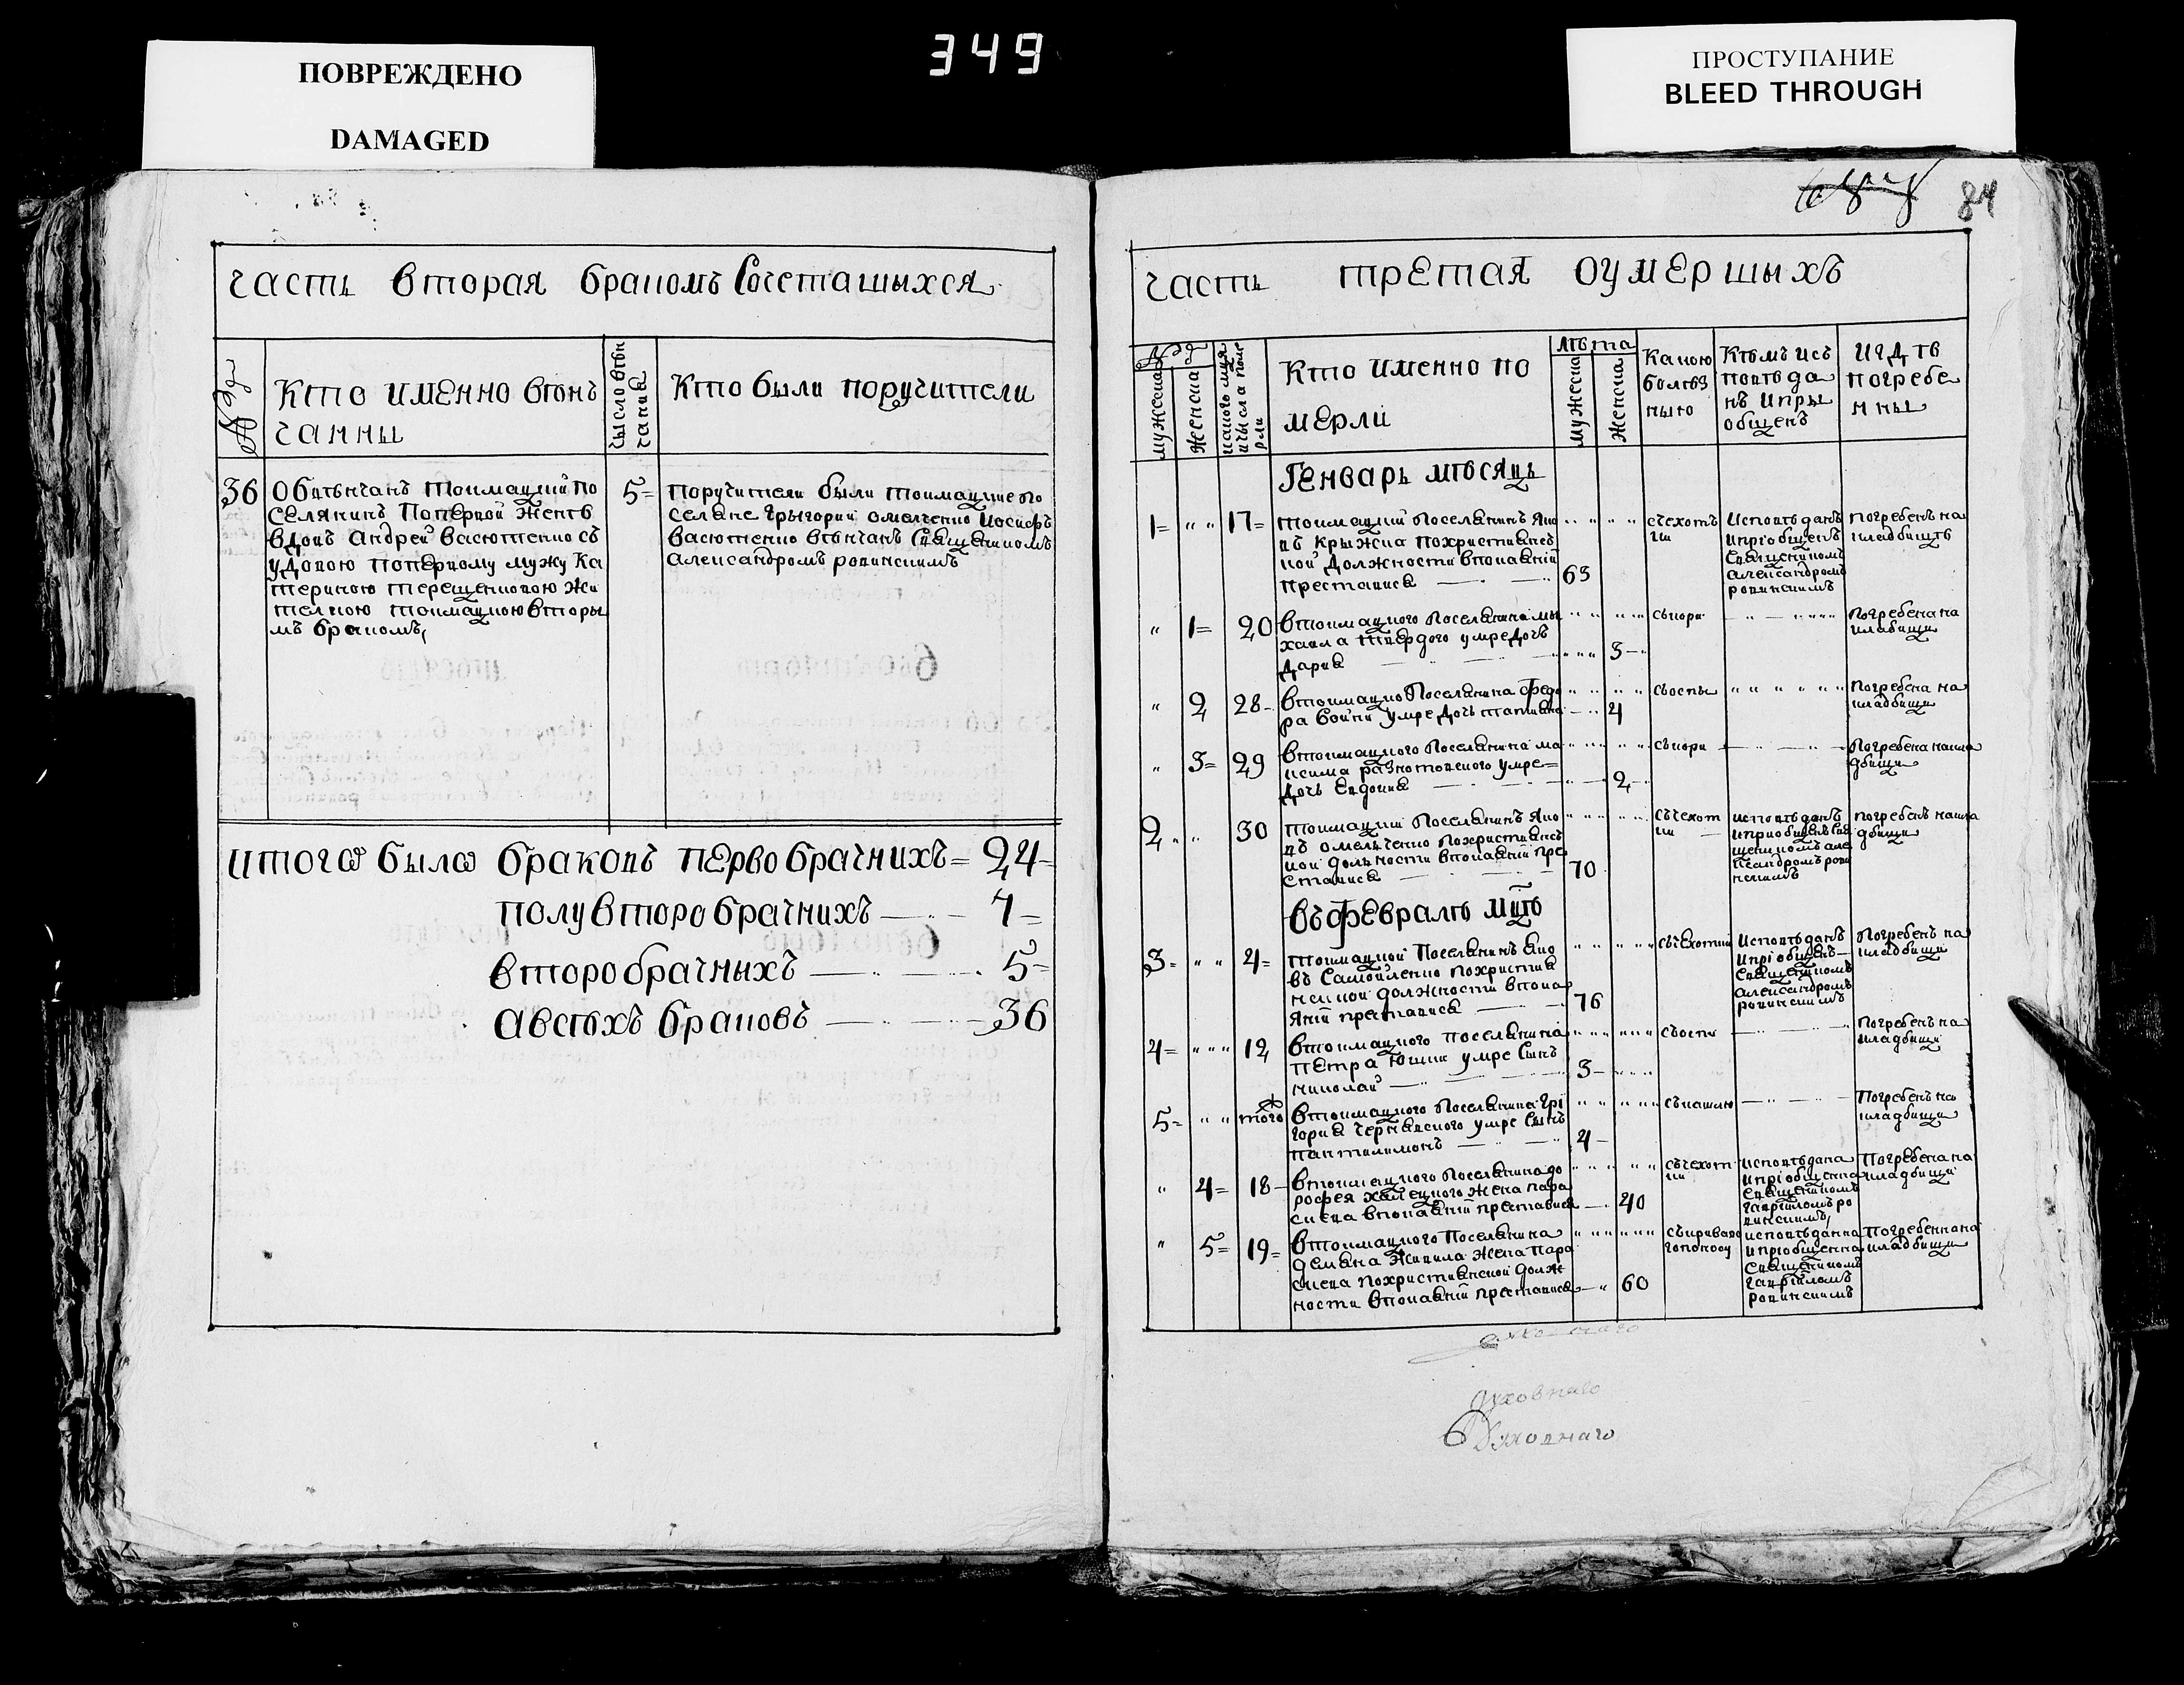 349
ПОВРЕЖДЕНО
DAMAGED
ПРОСТУПАНИЕ
BLEED THROUGH
84
часть вторая бракомъ Сочеташыхся
№
Кто именно вѣнъ
чанны
Кто были поручители
36
Обвѣнчанъ токмацкий по
селянинъ Попервой женѣ
вдовъ андрей васютенко съ
удовою попервому мужу Ка
териною терещенковою жи
телкою токмацкою вторы
мъ бракомъ,
5=
Поручители были токмацкие по
селяне григорий омелченко иосифъ
васютенко вѣнчанъ Священикомъ
александромъ ровинскимъ
итого было браковъ первобрачнихъ= 24-
полувторобрачнихъ — 7=
второбрачныхъ — 5=
авсѣхъ браковъ — 36
часть третая оумершыхъ
мужеска
женска
Кто именно по
мерли
лѣта
мужеска
женска
Какою
болѣз
ныю
Кѣмъ исъ
повѣда
нъ и пры
общенъ
игдѣ
погребе
нны
Генварь мѣсяць
1= " " 17=
токмацкий поселянинъ яко
въ крыжка похристианс
кой должности впокаянии
преставися 63
съчехот
ки
исповѣданъ
и приобщенъ
Священикомъ
александромъ
ровинскимъ
погребенъ на
кладбищѣ
" 1= 20
втокмацкого поселянина мы
хаила твердого умре дочь
дария 3-
съкори
Погребена на
клабищи
" 2 28-
втокмацко поселянина федо
ра бойки умре дочь татиана 4
съоспы
погребена на
кладбищи
" 3= 29
втокмацкого поселянина ма
ксима умре=
дочь евдокия 2-
съкори
Погребена накла
дбищи
2 " " 30
токмацкий поселянинъ яко
въ омелченко похристианс
кой должности впокаянии пре
ставися 70
съчехот
ки
исповѣданъ
и приобщенъ Свя
щеникомъ але
ксандромъ рови
нскимъ
погребенъ накла
дбищи
въ февралѣ мцѣ
3= " " 4=
токмацкой поселянинъ яко
въ Самойленко похристия
нской должности впока
янии преставися 76
съчехотки
исповѣданъ
и приобщенъ
Священикомъ
александромъ
ровинскимъ
Погребенъ на
кладбищи
4= " " " 12
втокмацкого поселянина
петра умре Сынъ
николай 3-
съоспы
Погребенъ на
кладбищи
5= " " того
втокмацкого поселянина гри
гория чернявского умре Сынъ
пантилимонъ 4-
съкашлю
Погребенъ на
кладбищи
" 4= 18-
втокмацкого поселянина до
рофея жена пара
скева впокаянии преставися 40
съчехот
ки
исповѣдана
и приобщенна
Священикомъ
гавриломъ ро
винскимъ,
Погребена на
кладбищи
" 5= 19=
втокмацкого поселянина
демяна жена пара
скева похристианской долж
ности впокаянии преставися 60
исповѣданна
и приобщенна
Священикомъ
гавриломъ
ровинскимъ
Погребенна на
кладбищи
духовнаго
Духовнаго